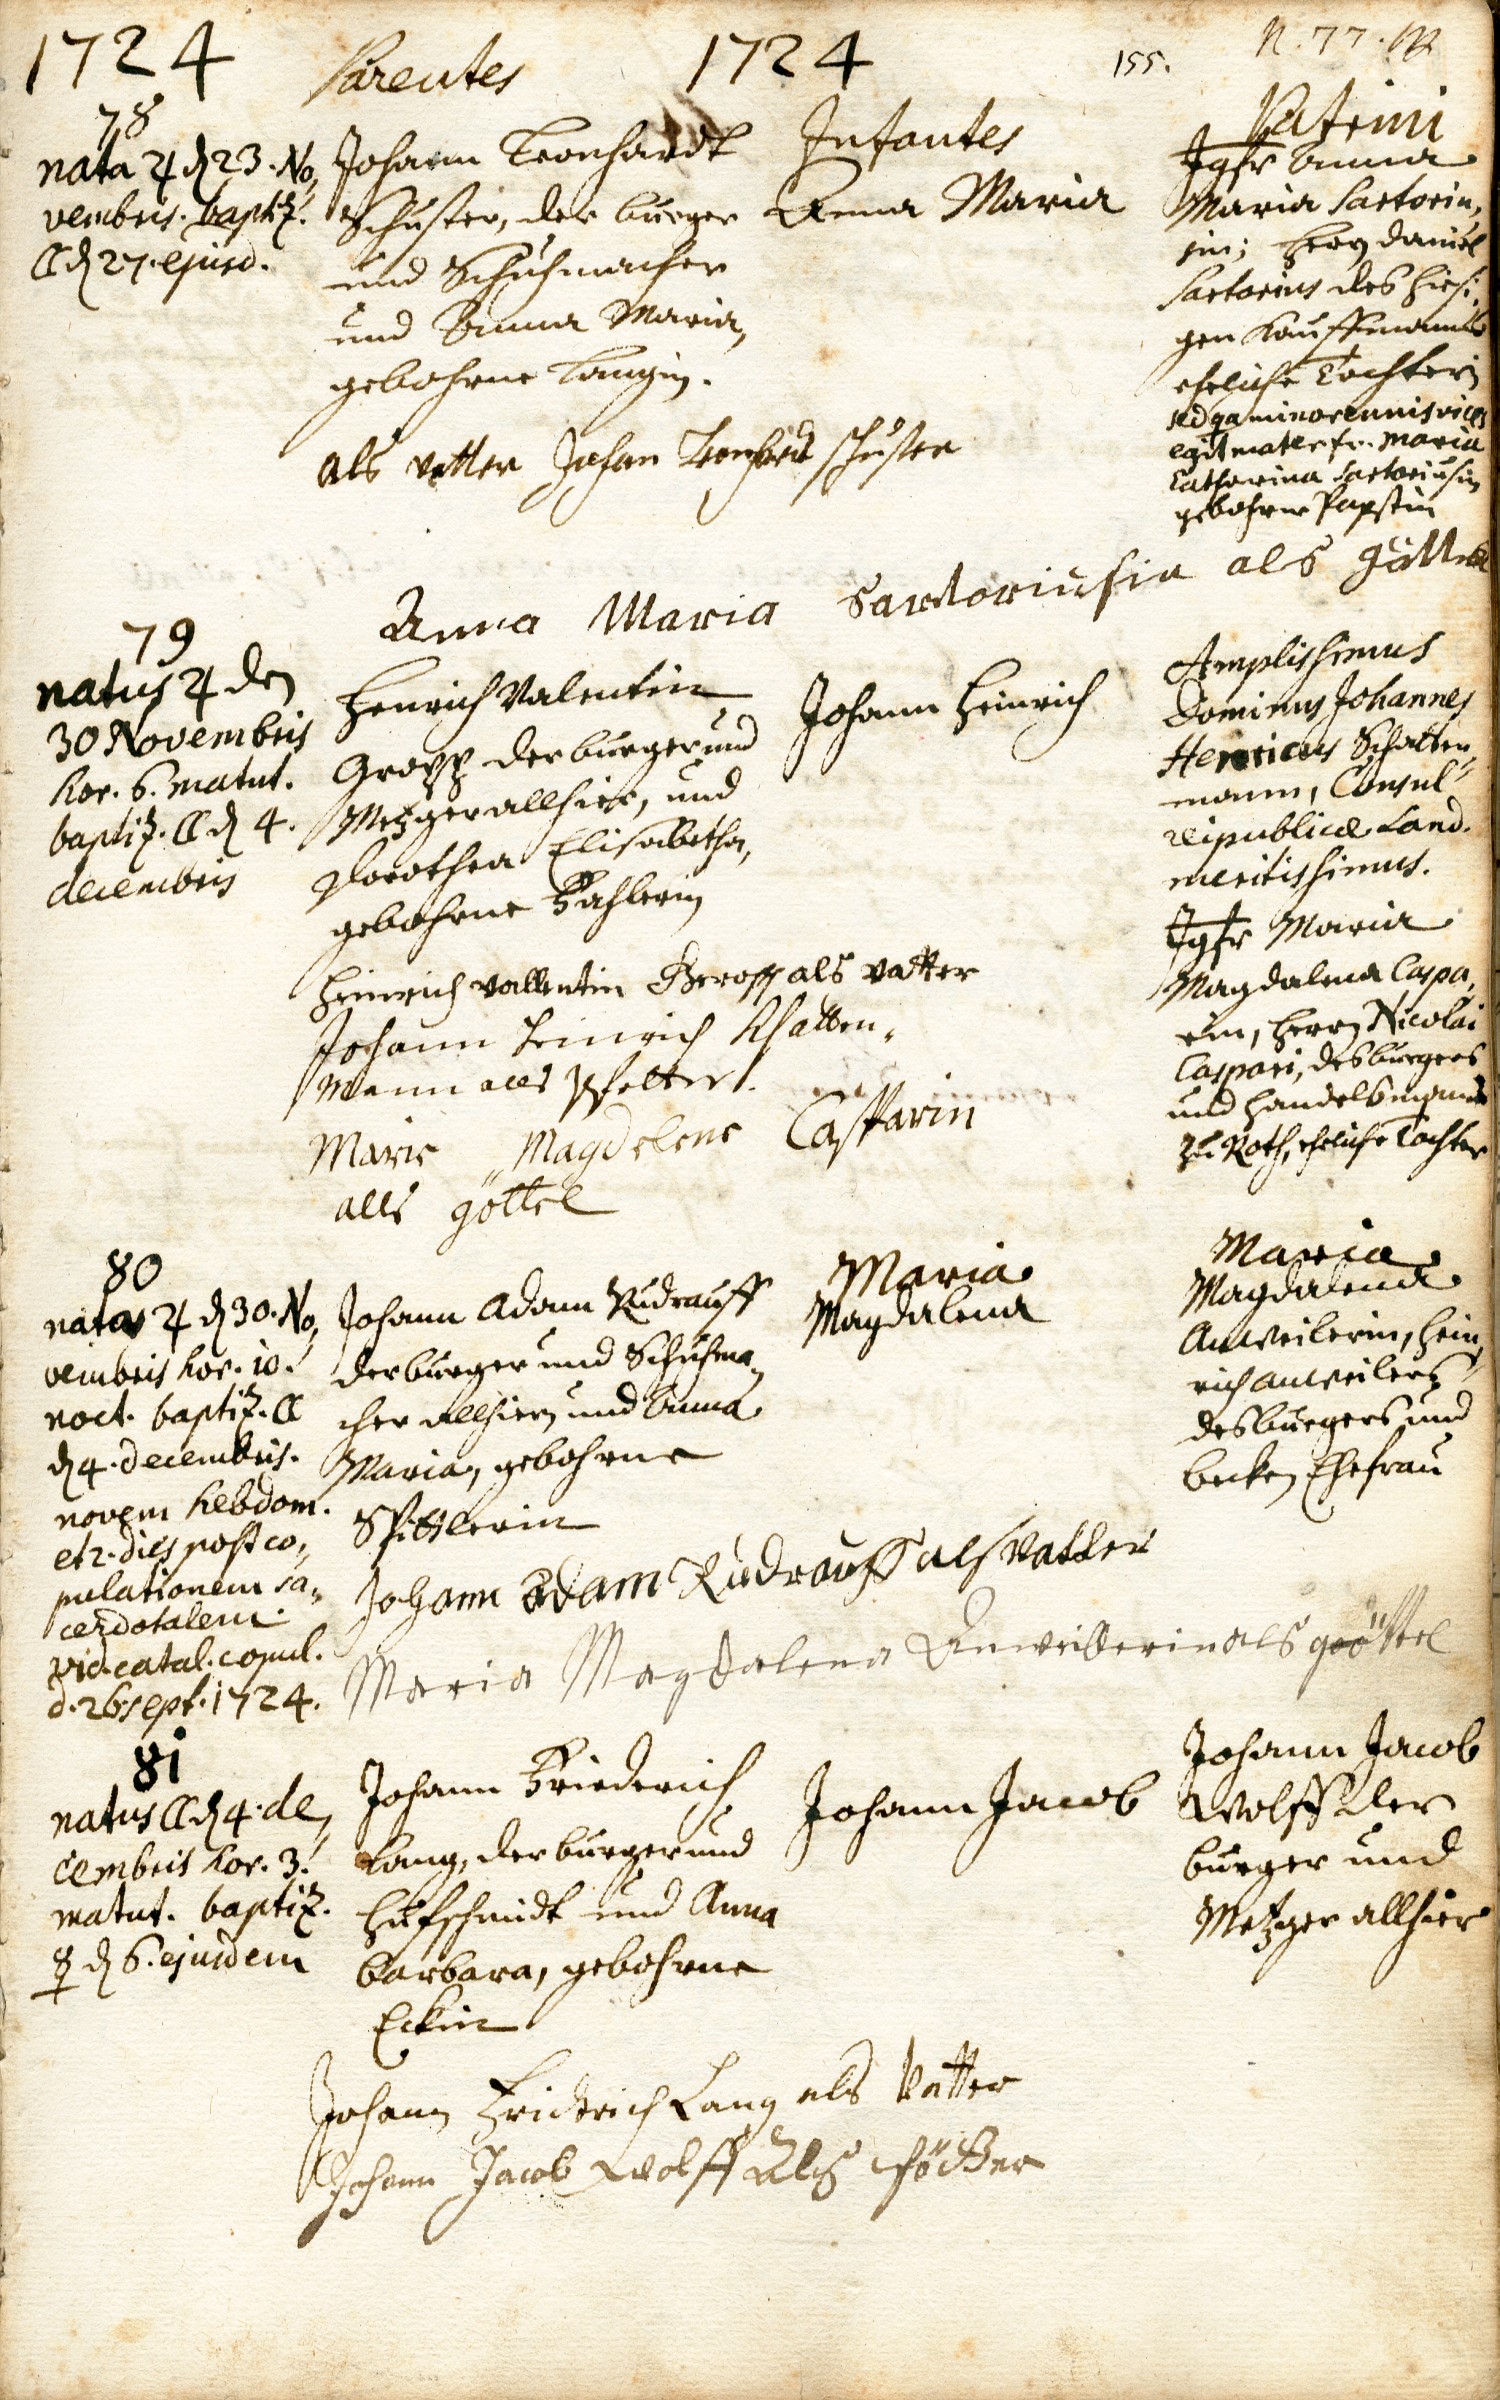 1724
Parentes
1724
155.
N. 77.
Infantes
Patrini
78
nata ♃ d 23. No,
vembris. baptiz.
☾ d 27. ejusd.
Johann Leonhardt
Schuster, der burger
und Schuhmacher
und Anna Maria,
gebohrne Langin.
Anna Maria
Jgfr Anna
Maria Sartorin,
sin; herrn daniel
Sartorius des hiesi,
gen Kauffmanns
eheliche Tochter;
sed qa minorennis vices
egit mater fr. Maria
Catharina Sartoriusin
gebohrne Papstin
als vatter Johan Leonhard schuster
Anna Maria Sartoriusin als göttel
79
natus ♃ den
30 Novembris
hor. 6. matut.
baptiz. ☾ d 4.
decembris
Henrich Valentin
Gropp der burger und
Metzger allhier, und
Dorothea Elisabetha,
gebohrne Kahlerin
Johann Heinrich
Amplissimus
Dominus Johannes
Henricus Schatten,
mann, Consul
reipublicæ Land.
meritissimus.
Jgfr Maria
Magdalena Caspa,
rin, herrn Nicolai
Caspari, des burgers
und handelsmanns
zu Roth, eheliche Tochter
Heinrich vallentin Gropp als vatter
Johann Heinrich Schatten,
mann als Pfetter.
Marie Magdelene Casparin
alls göttel
80
nata ♃ d 30. No,
vembris hor. 10.
noct. baptiz. ☾
d 4. decembris.
novem hebdom.
et 2. dies post co,
pulationem sa,
cerdotalem.
vid. catal. copul.
d. 26 sept. 1724.
Johann Adam Rudrauff
der burger und Schuhma,
cher allhier, und Anna
Maria, gebohrne
Spittlerin
Maria
Magdalena
Maria
Magdalena
Anweilerin, Hein,
rich anweilers
des burgers und
becken Ehefrau
Johann Adam Rudrauff als vatter
Maria Magdalena Anweillerin als göttel
81
natus ☾ d 4. de,
cembris hor. 3.
matut. baptiz.
☿ d 6. ejusdem
Johann Friederich
Lang, der burger und
Hufschmidt und Anna
barbara, gebohrne
Eckin
Johann Jacob
Johann Jacob
Wolff der
burger und
Metzger allhier
Johann Fridrich Lang als Vatter
Johann Jacob Wolff Als Pfötter